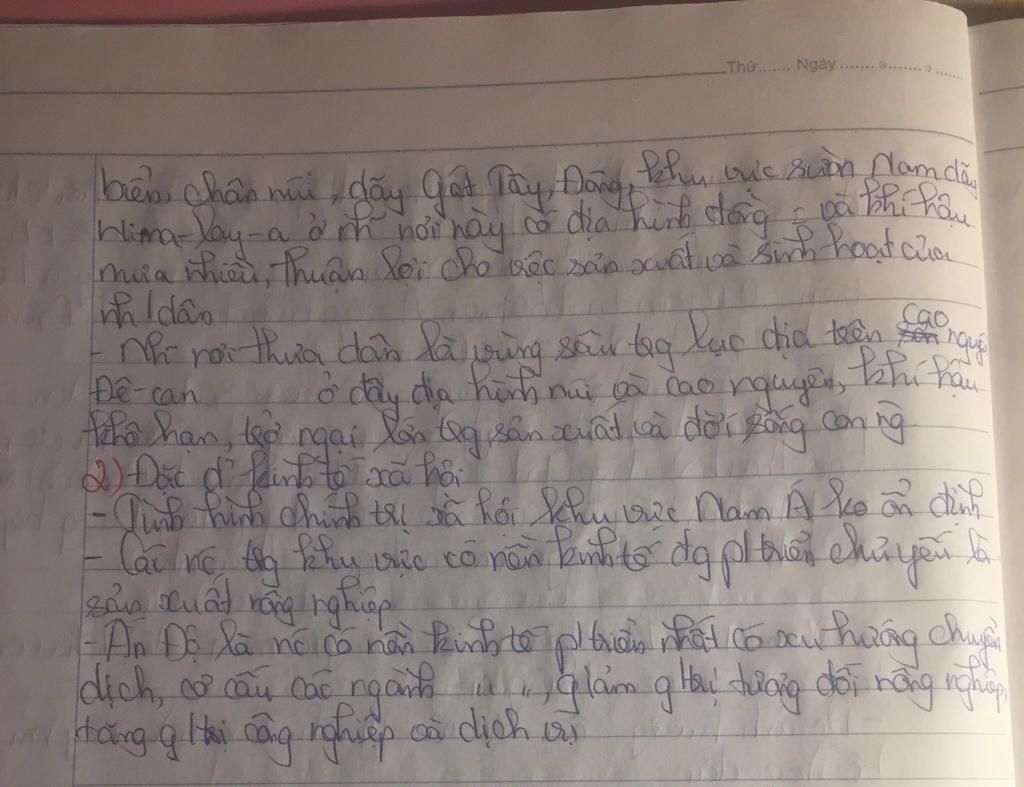 Thứ....... Ngày ....... ....... .......
biển, chân núi, dãy Gát Tây, Đông, khu vực sườn Nam dãy
Hima-lay-a ở nh~ nơi này có địa hình đồng = và khí hậu
mưa nhiều, thuận lợi cho việc sản xuất và sinh hoạt của
nh/dân
- Nh~ nơi thưa dân là vùng sâu tg lục địa trên cao nguyê
Đê-can ở đây địa hình núi và cao nguyên, khí hậu
khô hạn, trở ngại lớn tg sản xuất và đời sống con ng
2) Đặc đ' kinh tế xã hội
- Tình hình chính trị xã hội khu vực Nam Á ko ổn định
- Các nc tg khu vực có nền kinh tế đg pltriển chủ yếu là
sản xuất nông nghiệp
- Ấn Độ là nc có nền kinh tế pltriển nhất có xu hướng chuyển
dịch, cơ cấu các ngành " ", giảm g/trị tương đối nông nghiệp,
tăng g/trị công nghiệp và dịch vụ